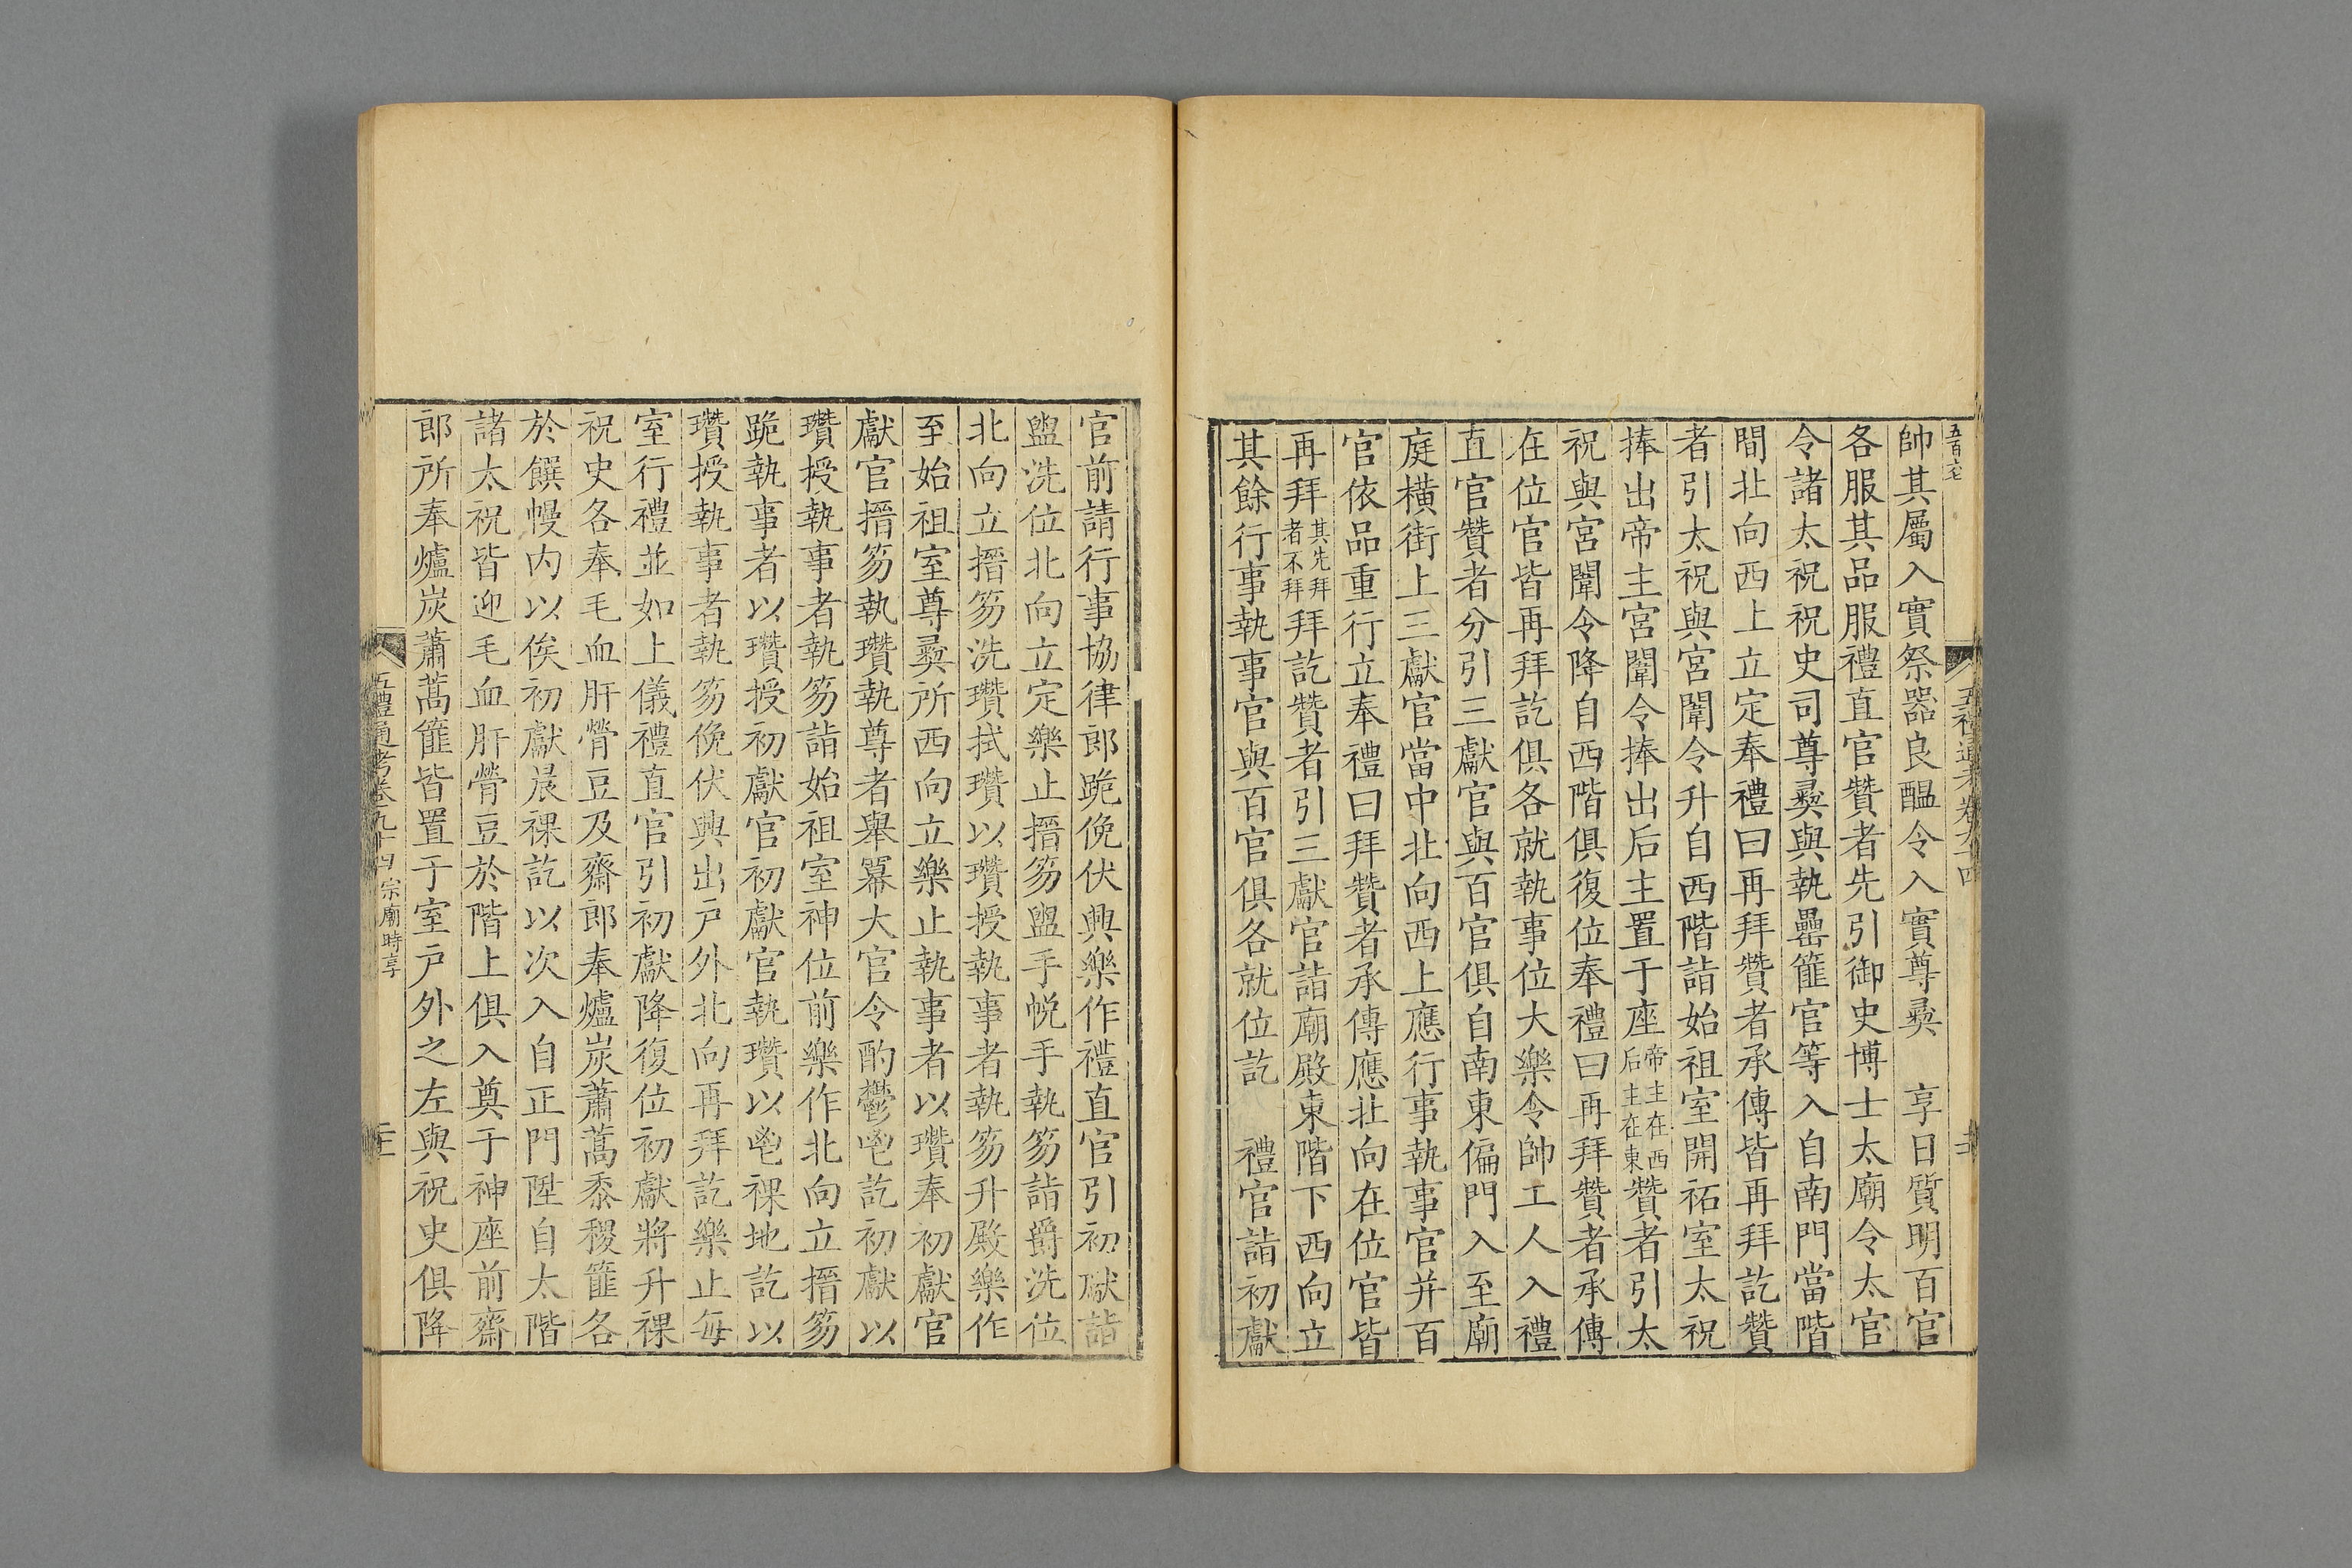 帥其屬入實祭器良醞令入實尊彝　享日質明百官
各服其品服禮直官贊者先引御史博士太廟令太官
令諸太祝祝史司尊彝與執罍篚官等入自南門當階
間北向西上立定奉禮曰再拜贊者承傳皆再拜訖贊
者引太祝與宮闈令升自西階詣始祖室開祏室太祝
捧出帝主宮闈令捧出后主置于座帝主在西后主在東贊者引太
祝與宮闈令降自西階俱復位奉禮曰再拜贊者承傳
在位官皆再拜訖俱各就執事位大樂令帥工人入禮
直官贊者分引三獻官與百官俱自南東偏門入至廟
庭橫街上三獻官當中北向西上應行事執事官并百
官依品重行立奉禮曰拜贊者承傳應北向在位官皆
再拜其先拜者不拜拜訖贊者引三獻官詣廟殿東階下西向立
其餘行事執事官與百官俱各就位訖　禮官詣初獻
官前請行事協律郎跪俛伏興樂作禮直官引初獻詣
盥洗位北向立定樂止搢笏盥手帨手執笏詣爵洗位
北向立搢笏洗瓚拭瓚以瓚授執事者執笏升殿樂作
至始祖室尊彝所西向立樂止執事者以瓚奉初獻官
獻官搢笏執瓚執尊者舉冪大官令酌鬱鬯訖初獻以
瓚授執事者執笏詣始祖室神位前樂作北向立搢笏
跪執事者以瓚授初獻官初獻官執瓚以鬯祼地訖以
瓚授執事者執笏俛伏興出戶外北向再拜訖樂止每
室行禮並如上儀禮直官引初獻降復位初獻將升祼
祝史各奉毛血肝膋豆及齋郎奉爐炭蕭蒿黍稷篚各
於饌幔内以俟初獻晨祼訖以次入自正門陞自太階
諸太祝皆迎毛血肝膋豆於階上俱入奠于神座前齋
郎所奉爐炭蕭蒿篚皆置于室戶外之左與祝史俱降
五禮通考卷九十四　宗廟時享